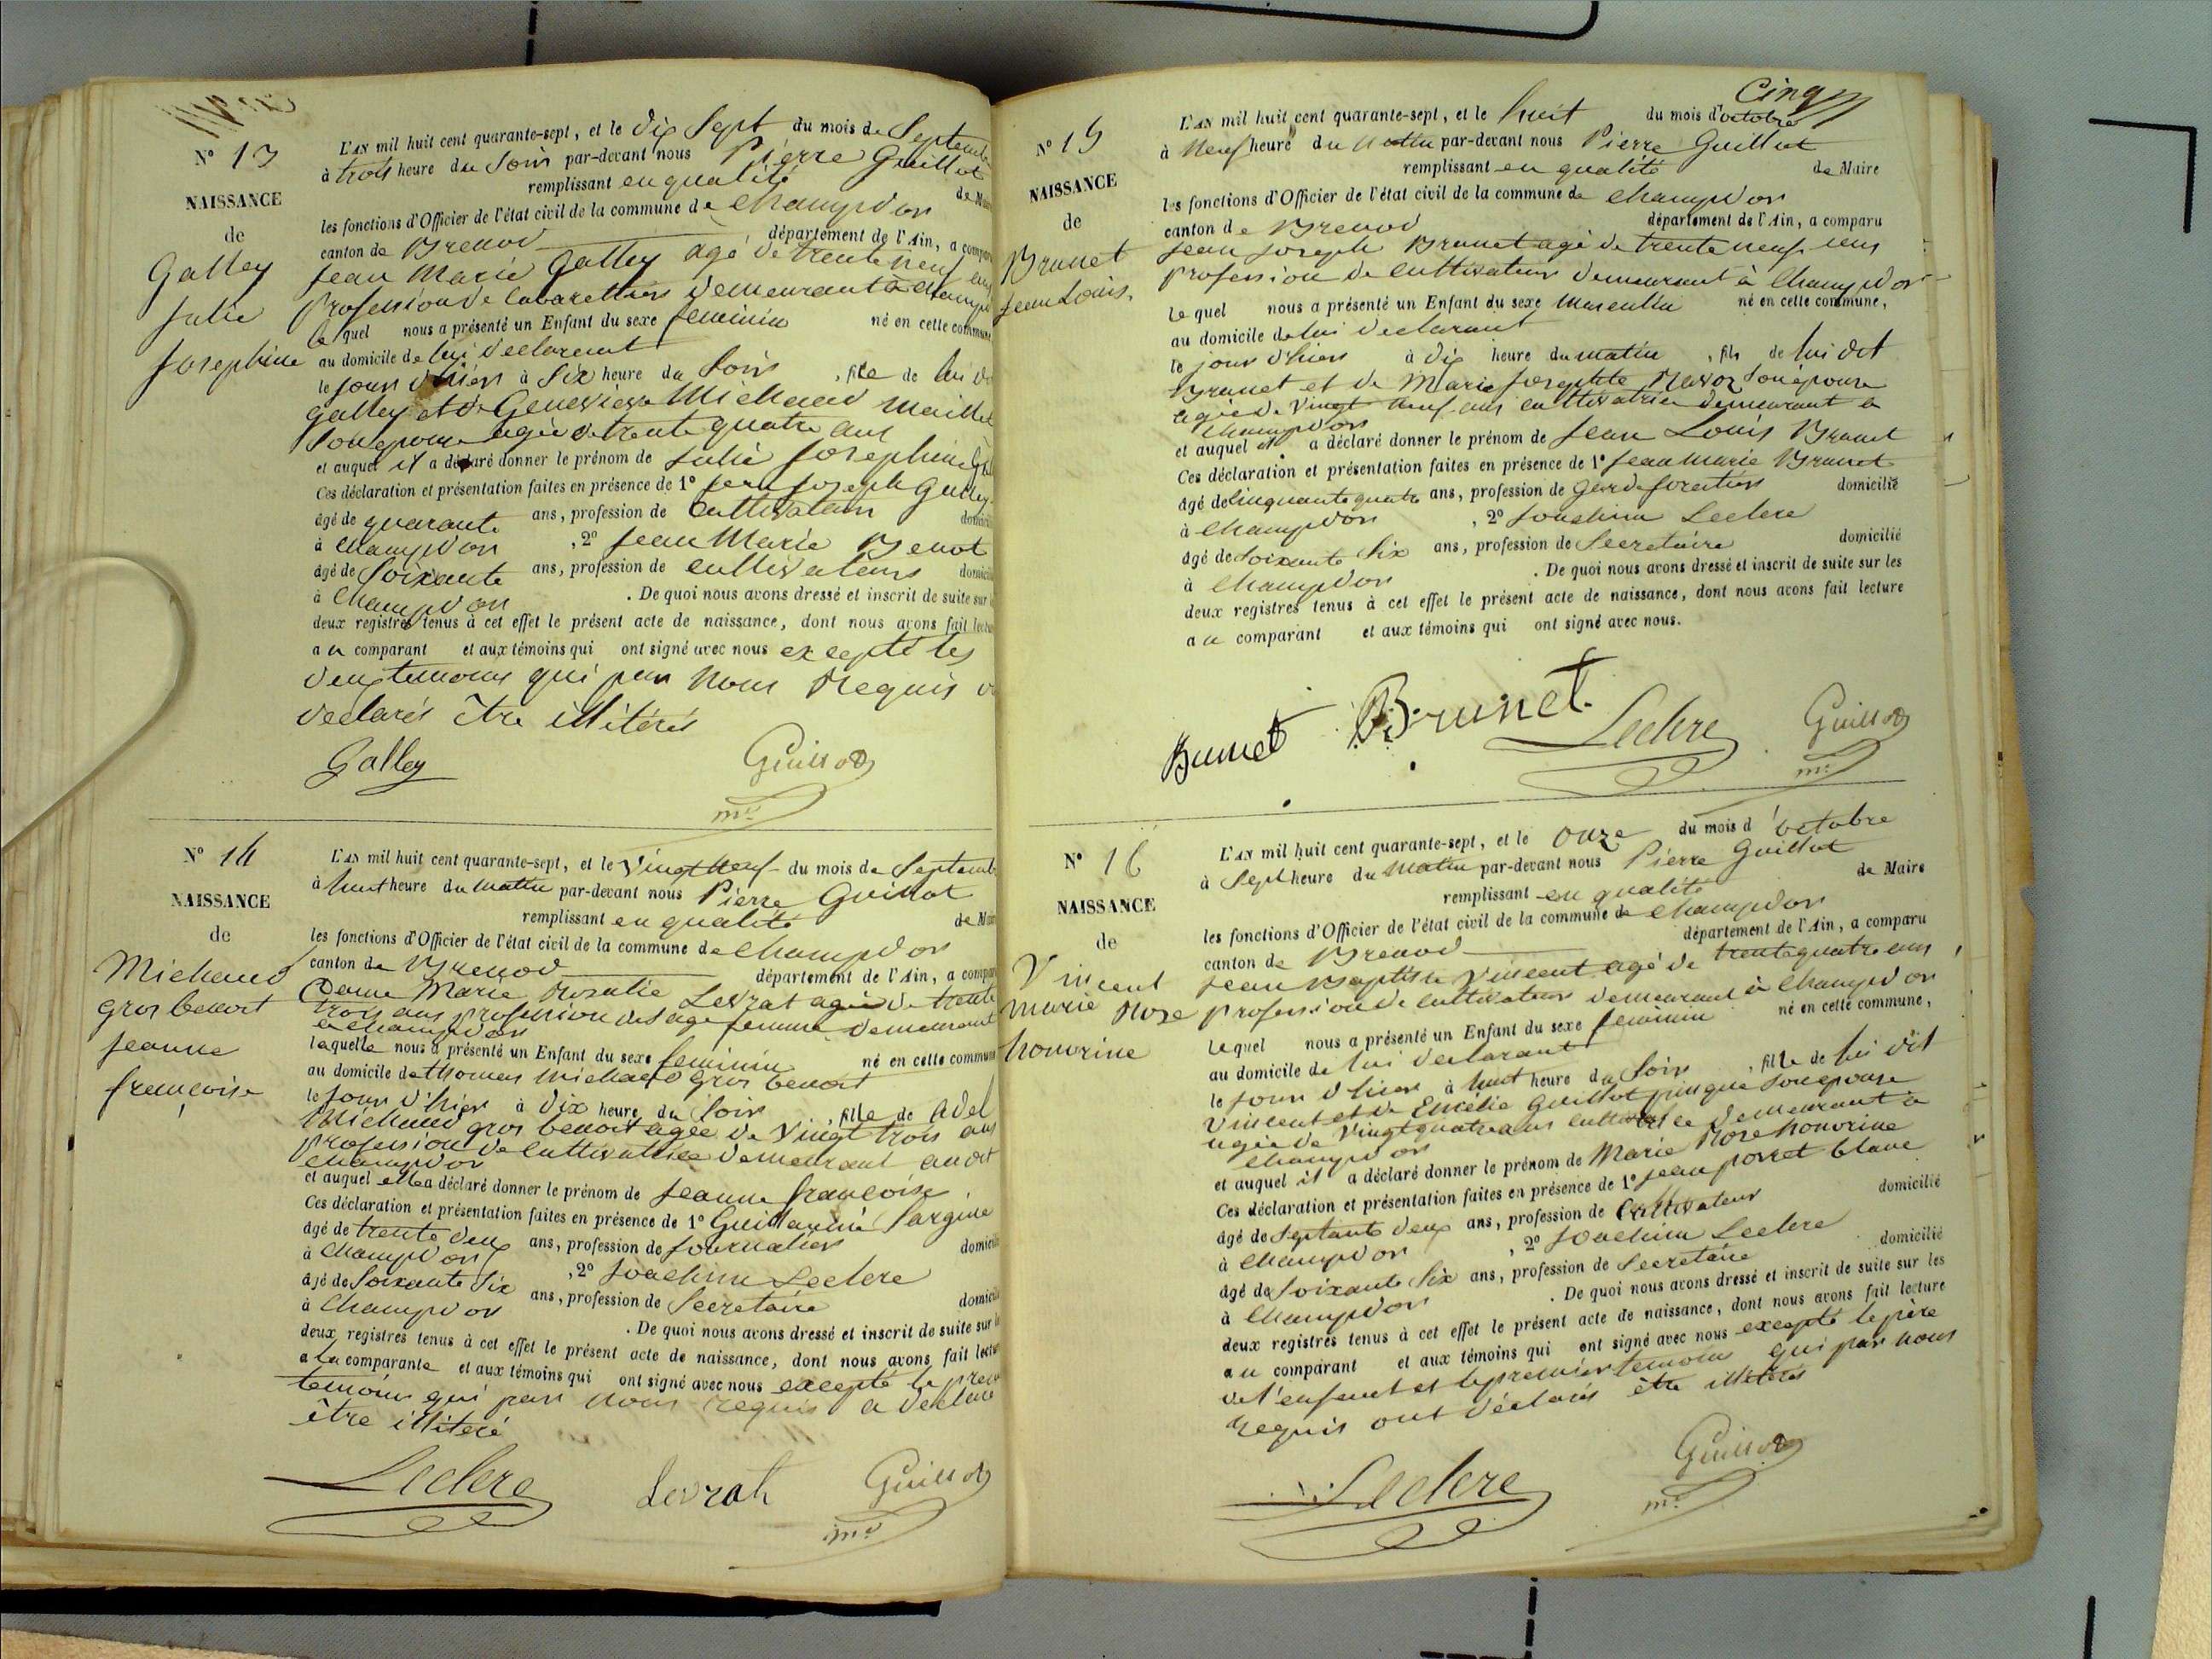 N° 13
NAISSANCE
de
Galley
Julie
Josephine
L'AN mil huit cent quarante-sept, et le dix Sept du mois de Septembre
à trois heure du Soir par-devant nous Pierre Guillot
remplissant en qualité de Mai
les fonctions d'Officier de l'état civil de la commune de Champdor
canton de Brenod département de l'Ain, a compar
Jean Marie Galley agé de trente neuf ans
profession de Cabarettier demeurant à Champd
le quel nous a présenté un Enfant du sexe feminin né en cette commune
au domicile de lui declarant
le jour d'hier à Six heure du Soir, fille de lui d
Galley et de Genevieve Michaud Maillet
Son epouse agée de trente quatre ans
et auquel il a déclaré donner le prénom de Julie Josephine
Ces déclaration et présentation faites en présence de 1° Jean Joseph Galley
âgé de quarante ans, profession de Cultivateur domicil
à Champdor, 2° Jean Marie Benot
âgé de Soixante ans, profession de cultivateur domicil
à Champdor. De quoi nous avons dressé et inscrit de suite sur
deux registres tenus à cet effet le présent acte de naissance, dont nous avons fait lectu
au comparant et aux témoins qui ont signé avec nous excepté les
deux temoins qui par nous Requis
declarés être illitérés
Galley Guillot
mre
N° 14
NAISSANCE
de
Michaud
gros benoit
jeanne
françoise
L'AN mil huit cent quarante-sept, et le Vingt Neuf du mois de Septemb
à huit heure du matin par-devant nous Pierre Guillot
remplissant en qualité de Mai
les fonctions d'Officier de l'état civil de la commune de Champdor
canton de Brenod département de l'Ain, a compar
Dame Marie Rosalie Levrat agée de trente
trois ans profession de Sage femme demeurant
à Champdor
laquelle nous a présenté un Enfant du sexe feminin né en cette commune
au domicile de thomas Michaud Gros benoit
le jour d'hier à dix heure du Soir, fille de Adel
Michaud gros benoit agée de Vingt trois ans
profession de Cultivatrice demeurant audit
Champdor
et auquel elle a déclaré donner le prénom de Jeanne françoise
Ces déclaration et présentation faites en présence de 1° Guillaume
âgé de trente deux ans, profession de Journalier domicil
à Champdor, 2° Joachim Leclere
âgé de Soixante Six ans, profession de Secretaire domicil
à Champdor. De quoi nous avons dressé et inscrit de suite sur
deux registres tenus à cet effet le présent acte de naissance, dont nous avons fait lectu
a la comparante et aux témoins qui ont signé avec nous excepté le prem
temoins qui par nous requis a declaré
être illitéré
Leclere Levrat Guillot
mre
Cinq
N° 15
NAISSANCE
de
Brunet
Jean Louis.
L'AN mil huit cent quarante-sept, et le huit du mois d'octobre
à Neuf heure du Matin par-devant nous Pierre Guillot
remplissant en qualité de Maire
les fonctions d'Officier de l'état civil de la commune de Champdor
canton de Brenod département de l'Ain, a comparu
Jean Joseph Brunet agé de trente neuf ans
profession de Cultivateur demeurant à Champdor
Le quel nous a présenté un Enfant du sexe Masculin né en cette commune,
au domicile de lui declarant
le jour d'hier à dix heure du matin, fils de lui dit
Brunet et de Marie Josephte Ravoz Son épouse
agée de Vingt Neuf ans cultivatrice demeurant à
Champdor
et auquel il a déclaré donner le prénom de Jean Louis Brunet
Ces déclaration et présentation faites en présence de 1° Jean Marie Brunet
âgé de Cinquante quatre ans, profession de garde forêtier domicilié
à Champdor, 2° Joachim Leclere
âgé de Soixante Six ans, profession de Secretaire domicilié
à Champdor. De quoi nous avons dressé et inscrit de suite sur les
deux registres tenus à cet effet le présent acte de naissance, dont nous avons fait lecture
au comparant et aux témoins qui ont signé avec nous.
Brunet Brunet Leclere Guillot
mre
N° 16
NAISSANCE
de
Vincent
Marie Rose
honorine
L'AN mil huit cent quarante-sept, et le Onze du mois d'octobre
à Sept heure du Matin par-devant nous Pierre Guillot
remplissant en qualité de Maire
les fonctions d'Officier de l'état civil de la commune de Champdor
canton de Brenod département de l'Ain, a comparu
Jean Baptiste Vincent agé de trente quatre ans
profession de Cultivateur demeurant à Champdor
Le quel nous a présenté un Enfant du sexe feminin né en cette commune,
au domicile de lui declarant
le jour d'hier à huit heure du Soir, fille de lui dit
Vincent et de Emélie Guillot Son epouse
agée de Vingt quatre ans cultivatrice demeurant à
Champdor
et auquel il a déclaré donner le prénom de Marie Rose honorine
Ces déclaration et présentation faites en présence de 1° Jean porret blanc
âgé de Septante deux ans, profession de Cultivateur domicilié
à Champdor, 2° Joachim Leclere
âgé de Soixante Six ans, profession de Secretaire domicilié
à Champdor. De quoi nous avons dressé et inscrit de suite sur les
deux registres tenus à cet effet le présent acte de naissance, dont nous avons fait lecture
au comparant et aux témoins qui ont signé avec nous excepté le père
de l'enfant et le premier temoins qui par nous
Requis ont déclarés être illitérés
Leclere Guillot
mre